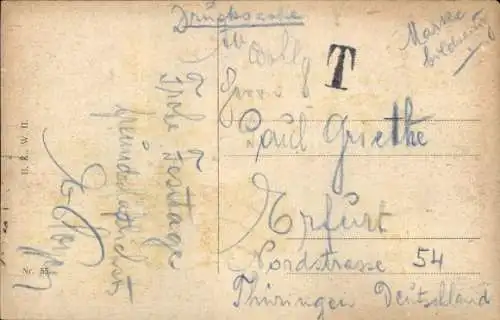 Drucksache
T
Marke
Herrn
Paul Griethe
Erfurt
Nordstrasse 54
Thüringen Deutschland
Frohe Festtage
freundschaftlichst
B. K. W. II.
Nr. 55